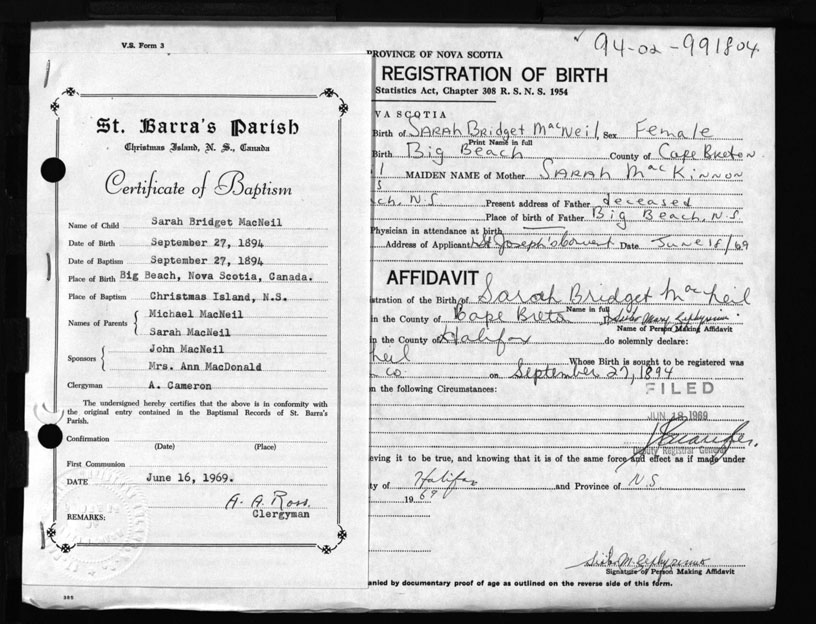 V.S. Form 3
94-02-991804
St. Barra's Parish
Christmas Island, N. S., Canada
Certificate of Baptism
Name of Child Sarah Bridget MacNeil
Date of Birth September 27, 1894
Date of Baptism September 27, 1894
Place of Birth Big Beach, Nova Scotia, Canada.
Place of Baptism Christmas Island, N.S.
Names of Parents Michael MacNeil
Sarah MacNeil
Sponsors John MacNeil
Mrs. Ann MacDonald
Clergyman A. Cameron
The undersigned hereby certifies that the above is in conformity with
the original entry contained in the Baptismal Records of St. Barra's
Parish.
Confirmation
(Date) (Place)
First Communion
DATE June 16, 1969.
A. A. Ross.
Clergyman
REMARKS:
PROVINCE OF NOVA SCOTIA
REGISTRATION OF BIRTH
Statistics Act, Chapter 308 R. S. N. S. 1954
VA SCOTIA
Birth of Sarah Bridget MacNeil, Sex Female
Print Name in full
Birth Big Beach County of Cape Breton
MAIDEN NAME of Mother Sarah MacKinnon
ch, N.S Present address of Father deceased
Place of birth of Father Big Beach, N.S
Physician in attendance at birth
Address of Applicant St Joseph's Convent Date June 18/69
AFFIDAVIT
stration of the Birth of Sarah Bridget MacNeil
Name in full
in the County of Cape Breton
Name of Person Making Affidavit
n the County of Halifax do solemnly declare:
neil Whose Birth is sought to be registered was
Co. on September 27, 1894
n the following Circumstances:
FILED
JUN 18 1969
Deputy Registrar General
eving it to be true, and knowing that it is of the same force and effect as if made under
ty of Halifax and Province of N.S
1969
Signature of Person Making Affidavit
anied by documentary proof of age as outlined on the reverse side of this form.